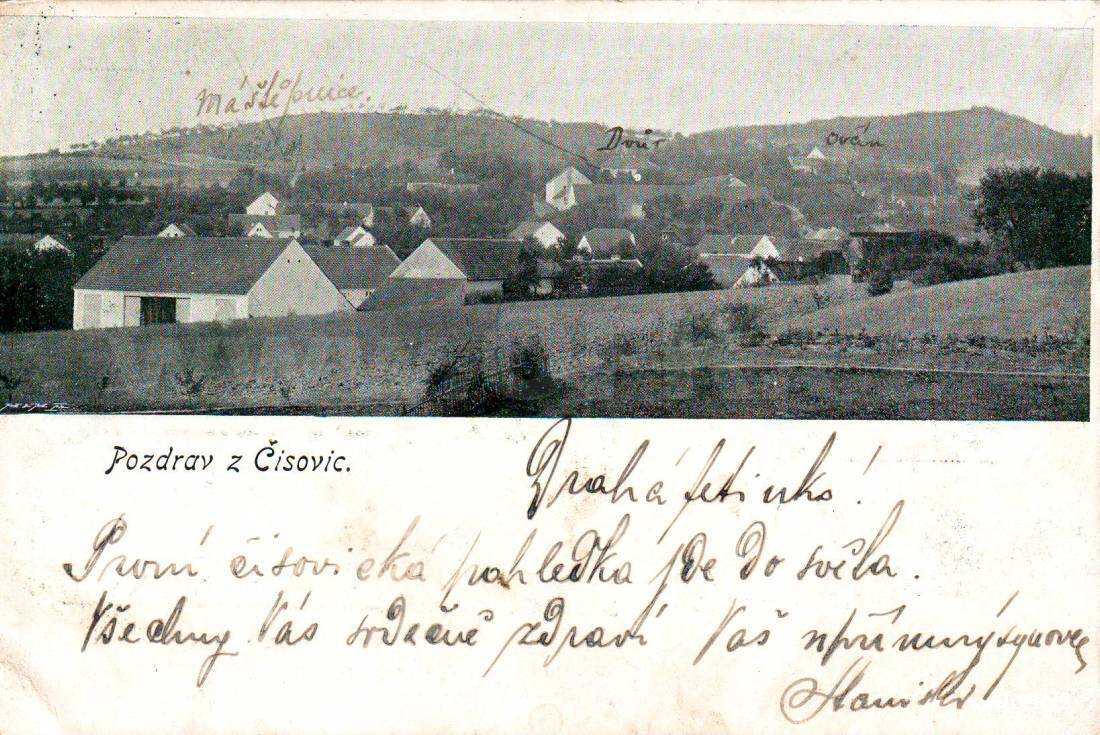 Dvůr
Pozdrav z Čisovic.
Drahá tetinko!
První čisovická pohledka jde do světa.
Všechny Vás srdečně zdraví Váš upřímný synovec